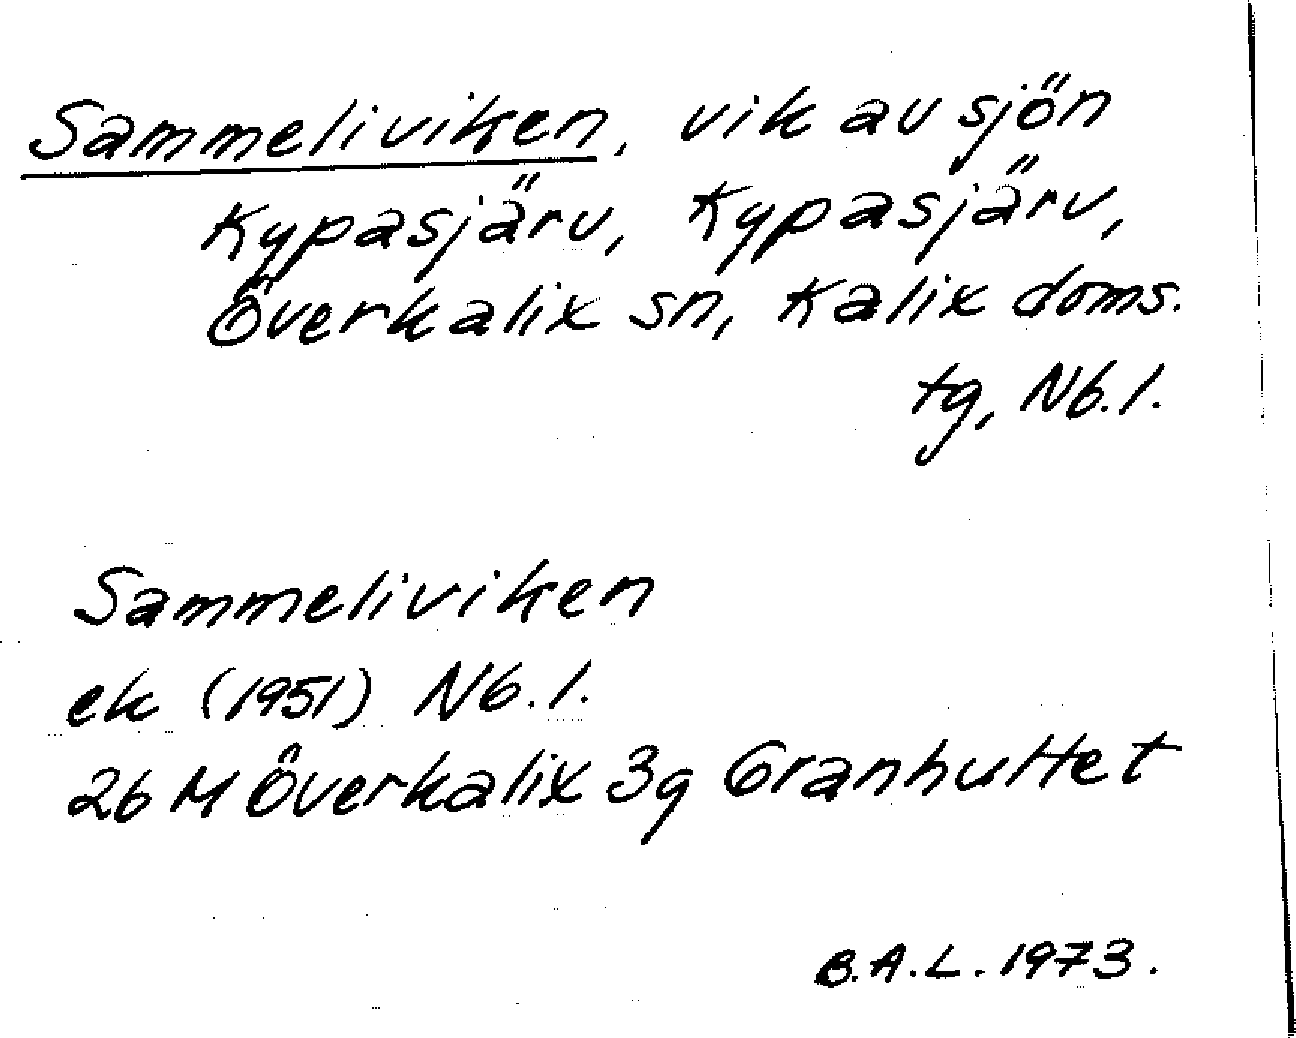 Sammeliviken, vik av sjön
Kypasjärv, Kypasjärv,
Överkalix sn, Kalix doms.
tg, Nb.l.
Sammeliviken
ek (1951) Nb.l.
26 M Överkalix 3g Granhultet
B.A.L. 1973.